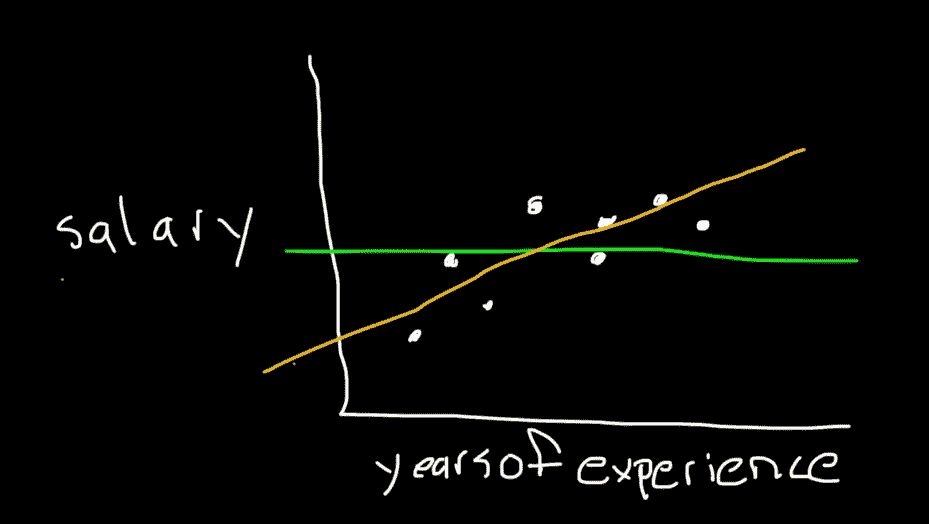 salary
years of experience